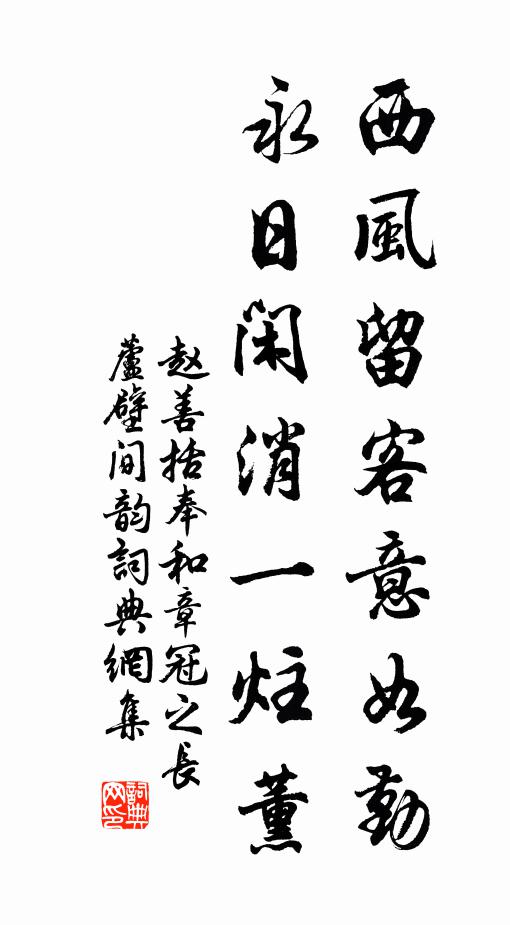 西風留客意如勤
永日閑消一炷薰
赵善括奉和章冠之長
蘆壁间韵詞典網集
詞典网印